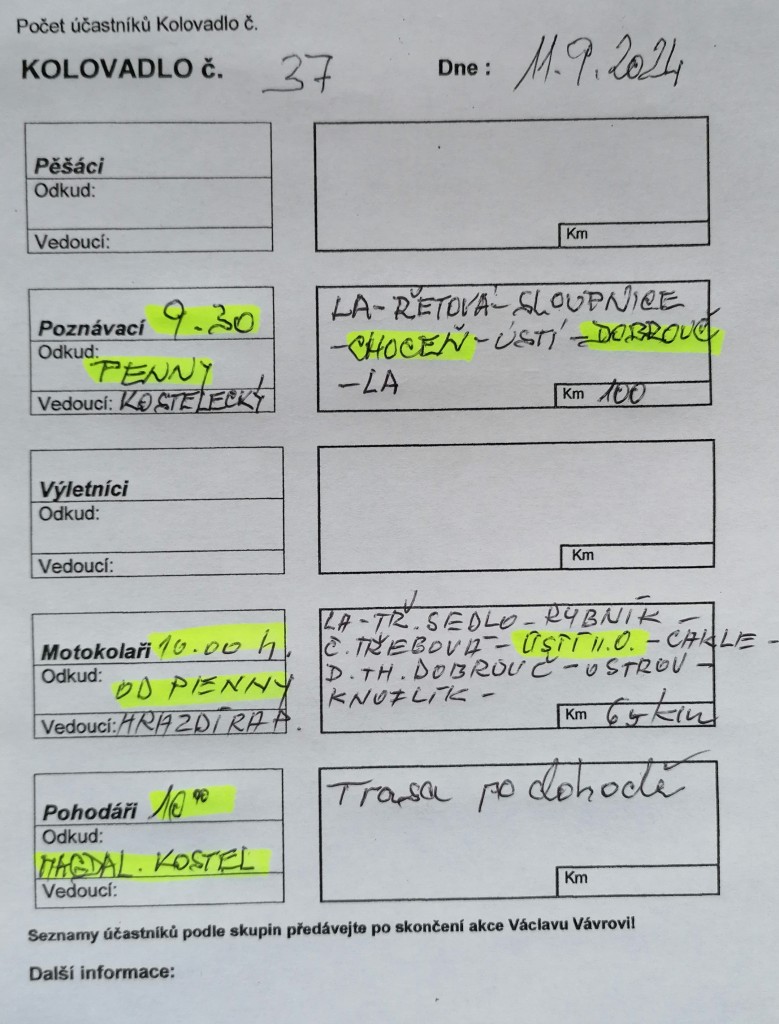 Počet účastníků Kolovadlo č.
KOLOVADLO č. 37 Dne : 11.9.2024
Pěšáci
Odkud:
Vedoucí:
Km
Poznávací 9.30
Odkud:
PENNY
Vedoucí: KOSTELECKÝ
LA - ŘETOVÁ - SLOUPNICE
- CHOCEŇ - ÚSTÍ - DOBROUČ
- LA
Km 100
Výletníci
Odkud:
Vedoucí:
Km
Motokolaři 10.00 h.
Odkud:
OD PENNY
Vedoucí: HRAZDÍRA P.
LA - TŘ. SEDLO - RYBNÍK -
Č. TŘEBOVÁ - ÚSTÍ n.O. - CAKLE -
D. TH. DOBROUČ - OSTROV -
KNOFLÍK -
Km 65 km
Pohodáři 10°°
Odkud:
MAGDAL. KOSTEL
Vedoucí:
Trasa po dohodě
Km
Seznamy účastníků podle skupin předávejte po skončení akce Václavu Vávrovi!
Další informace: